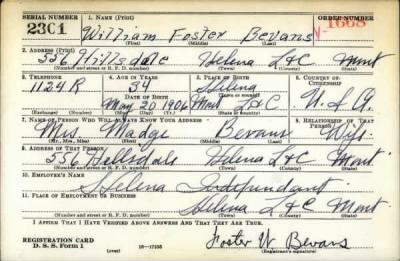 SERIAL NUMBER 1. NAME (Print) ORDER NUMBER
2301 William Foster Bevans V-1668
(First) (Middle) (Last)
2. ADDRESS (Print)
556 Hillsdale Helena L&C Mont
(Number and street or R. F. D. number) (Town) (County) (State)
3. TELEPHONE 4. AGE IN YEARS 5. PLACE OF BIRTH 6. COUNTRY OF CITIZENSHIP
1124 R 34 Helena
DATE OF BIRTH (Town or county)
May 20 1906 Mont L&C U.S.A.
(Exchange) (Number) (Mo.) (Day) (Yr.) (State or country)
7. NAME OF PERSON WHO WILL ALWAYS KNOW YOUR ADDRESS 8. RELATIONSHIP OF THAT PERSON
Mrs. Madge Bevans Wife
(Mr., Mrs., Miss) (First) (Middle) (Last)
9. ADDRESS OF THAT PERSON
556 Hillsdale Helena L&C Mont
(Number and street or R. F. D. number) (Town) (County) (State)
10. EMPLOYER'S NAME
Helena Independant
11. PLACE OF EMPLOYMENT OR BUSINESS
Helena L&C Mont
(Number and street or R. F. D. number) (Town) (County) (State)
I AFFIRM THAT I HAVE VERIFIED ABOVE ANSWERS AND THAT THEY ARE TRUE.
REGISTRATION CARD
D. S. S. Form 1 (over) 16-17105 Foster W Bevans
(Registrant's signature)